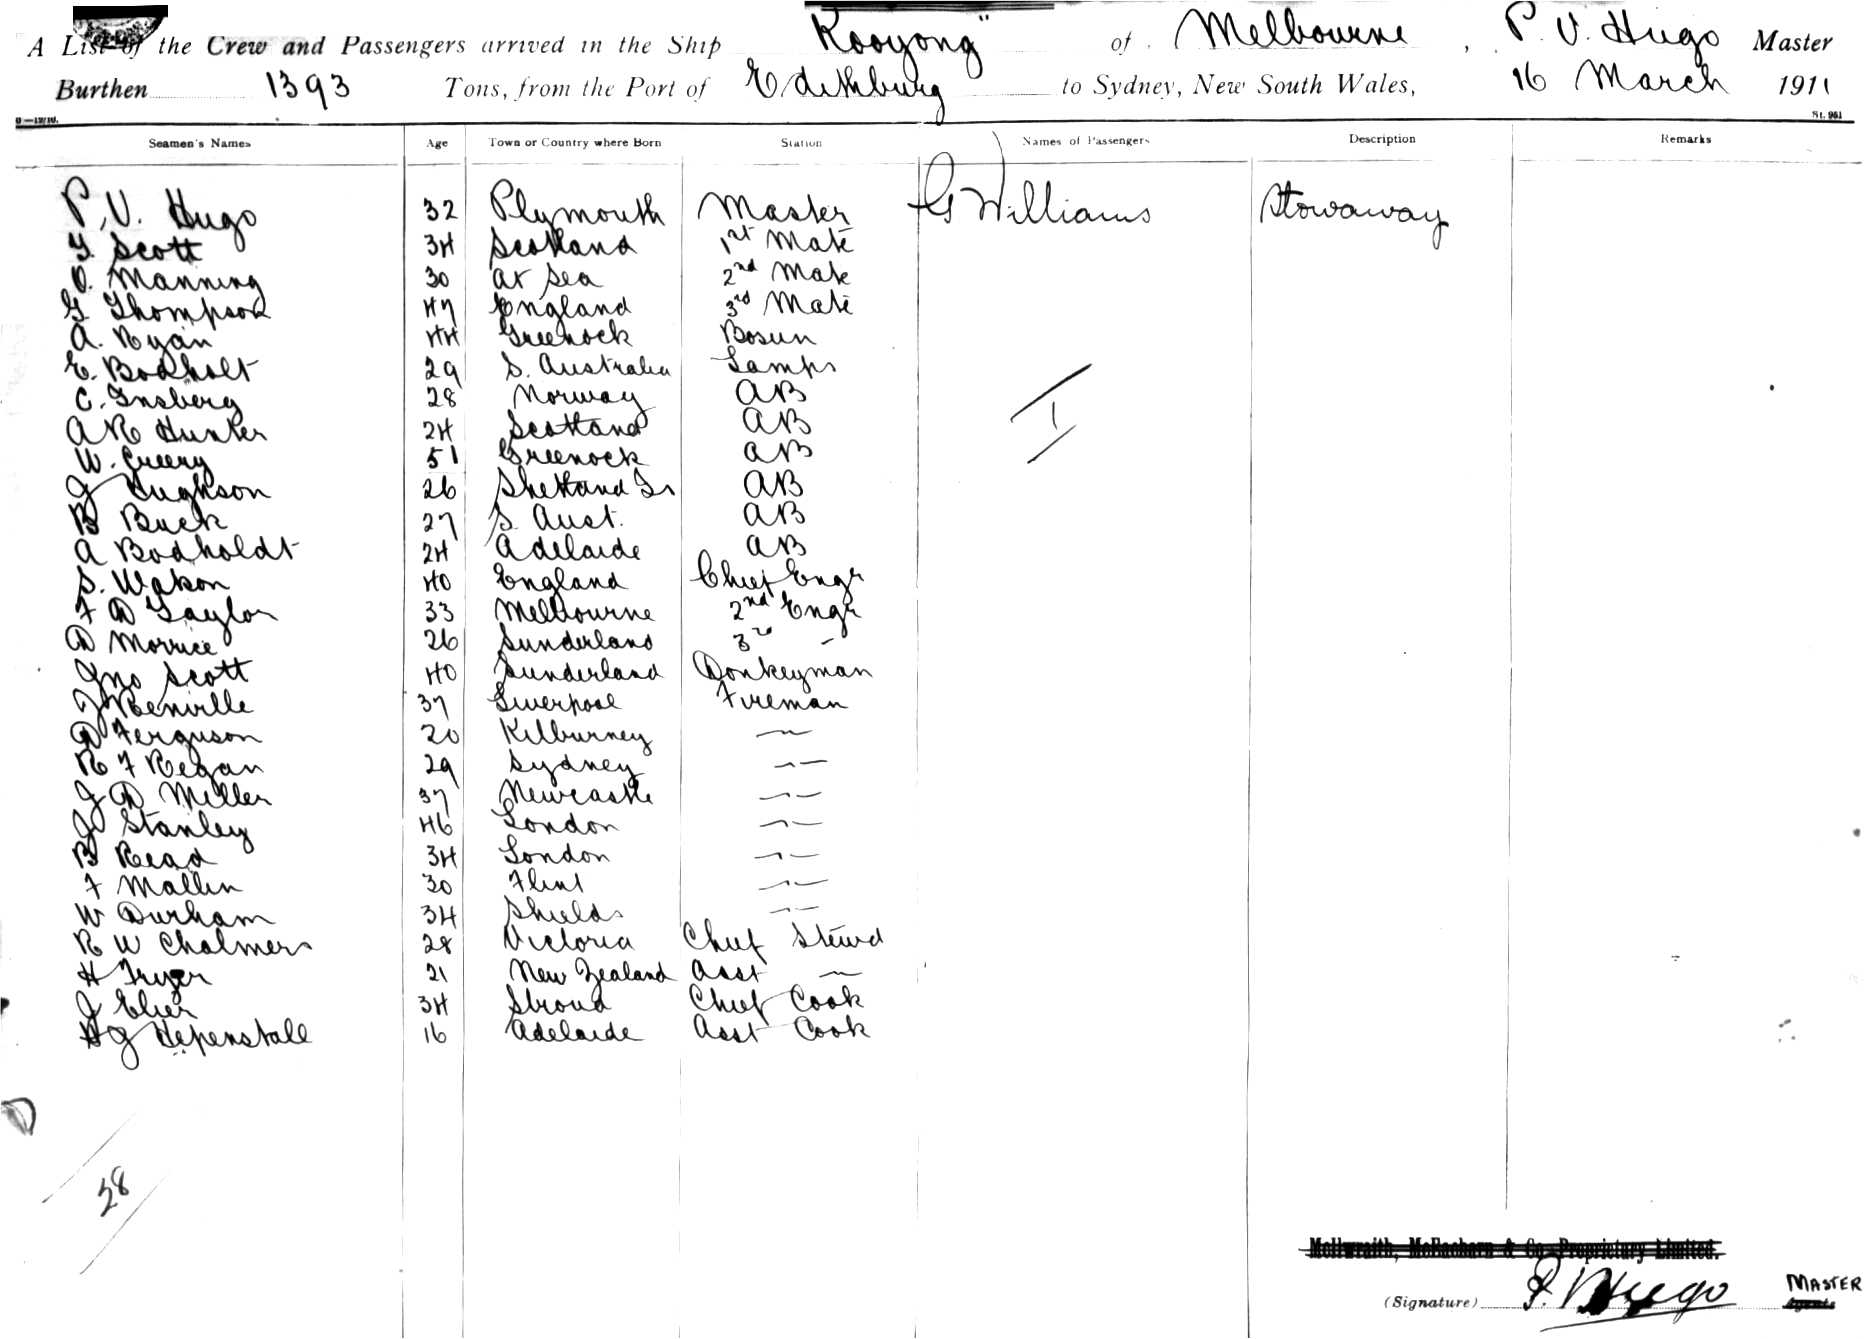 A List of the Crew and Passengers arrived in the Ship Kooyong" of Melbourne, P. V. Hugo Master
Burthen 1393 Tons, from the Port of Edithburg to Sydney, New South Wales, 16 March 1911
St. 951
Seamen's Names Age Town or Country where Born Station Names of Passengers Description Remarks
P. V. Hugo 32 Plymouth Master G Williams Stowaway
Scott 34 Scotland 1st Mate
O. Manning 30 At Sea 2nd Mate
G Thompson 47 England 3rd Mate
A. Ryan 44 Greenock Bosun
E. Bodholt 29 S. Australia Lamps
C. Insberg 28 Norway AB
A R Hunter 24 Scotland AB
W. Creery 51 Greenock AB
J Hughson 26 Shetland Is AB
B Buck 27 S. Aust. AB
A Bodholdt 24 Adelaide AB
S. 40 England Chief Engr
F D Taylor 33 Melbourne 2nd Engr
D Morrice 26 Sunderland 3rd -
Jno Scott 40 Sunderland Donkeyman
J Benville 37 Liverpool Fireman
D Ferguson 20 Kilburney
R F Regan 29 Sydney
J D Miller 37 Newcastle
J Stanley 46 London
B Read 34 London
F Mallin 30 Flint
W Durham 34 Shields
R W Chalmers 28 Victoria Chief Stewd
H Fryer 21 New Zealand Asst
J Elier 34 Stroud Chief Cook
H J Hepenstall 16 Adelaide Asst Cook
1
28
McIlwraith, McEacharn & Co Proprietary Limited.
(Signature) P. V Hugo MASTER
Agents